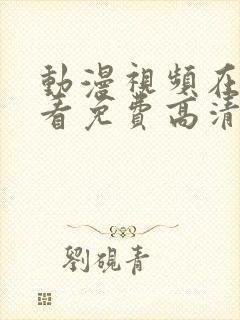 動漫視頻在
看免費高清
劉硯青